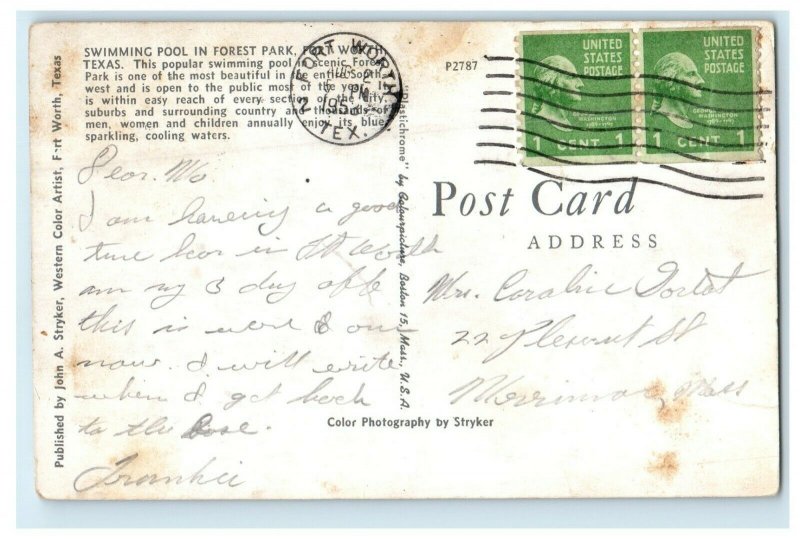 SWIMMING POOL IN FOREST PARK, FORT WORTH,
TEXAS. This popular swimming pool in scenic Forest
Park is one of the most beautiful in the entire South-
west and is open to the public most of the year. It
is within easy reach of every section of the City,
suburbs and surrounding country and thousands of
men, women and children annually enjoy its blue
sparkling, cooling waters.
Published by John A. Stryker, Western Color Artist, Fort Worth, Texas
FORT WORTH
PM
195
TEX.
P2787
UNITED
STATES
POSTAGE
1 CENT 1
UNITED
STATES
POSTAGE
GEORGE
WASHINGTON
1 CENT 1
"Plastichrome" by Colourpicture, Boston 15, Mass., U.S.A.
Post Card
ADDRESS
Dear Mo
I am having a good
time hear in Ft Worth
am my 3 day
this is
now. I will write
when I get back
to the base.
Frankie
Mrs. Caroline
22 Plesent St
Merrimac, Mass
Color Photography by Stryker